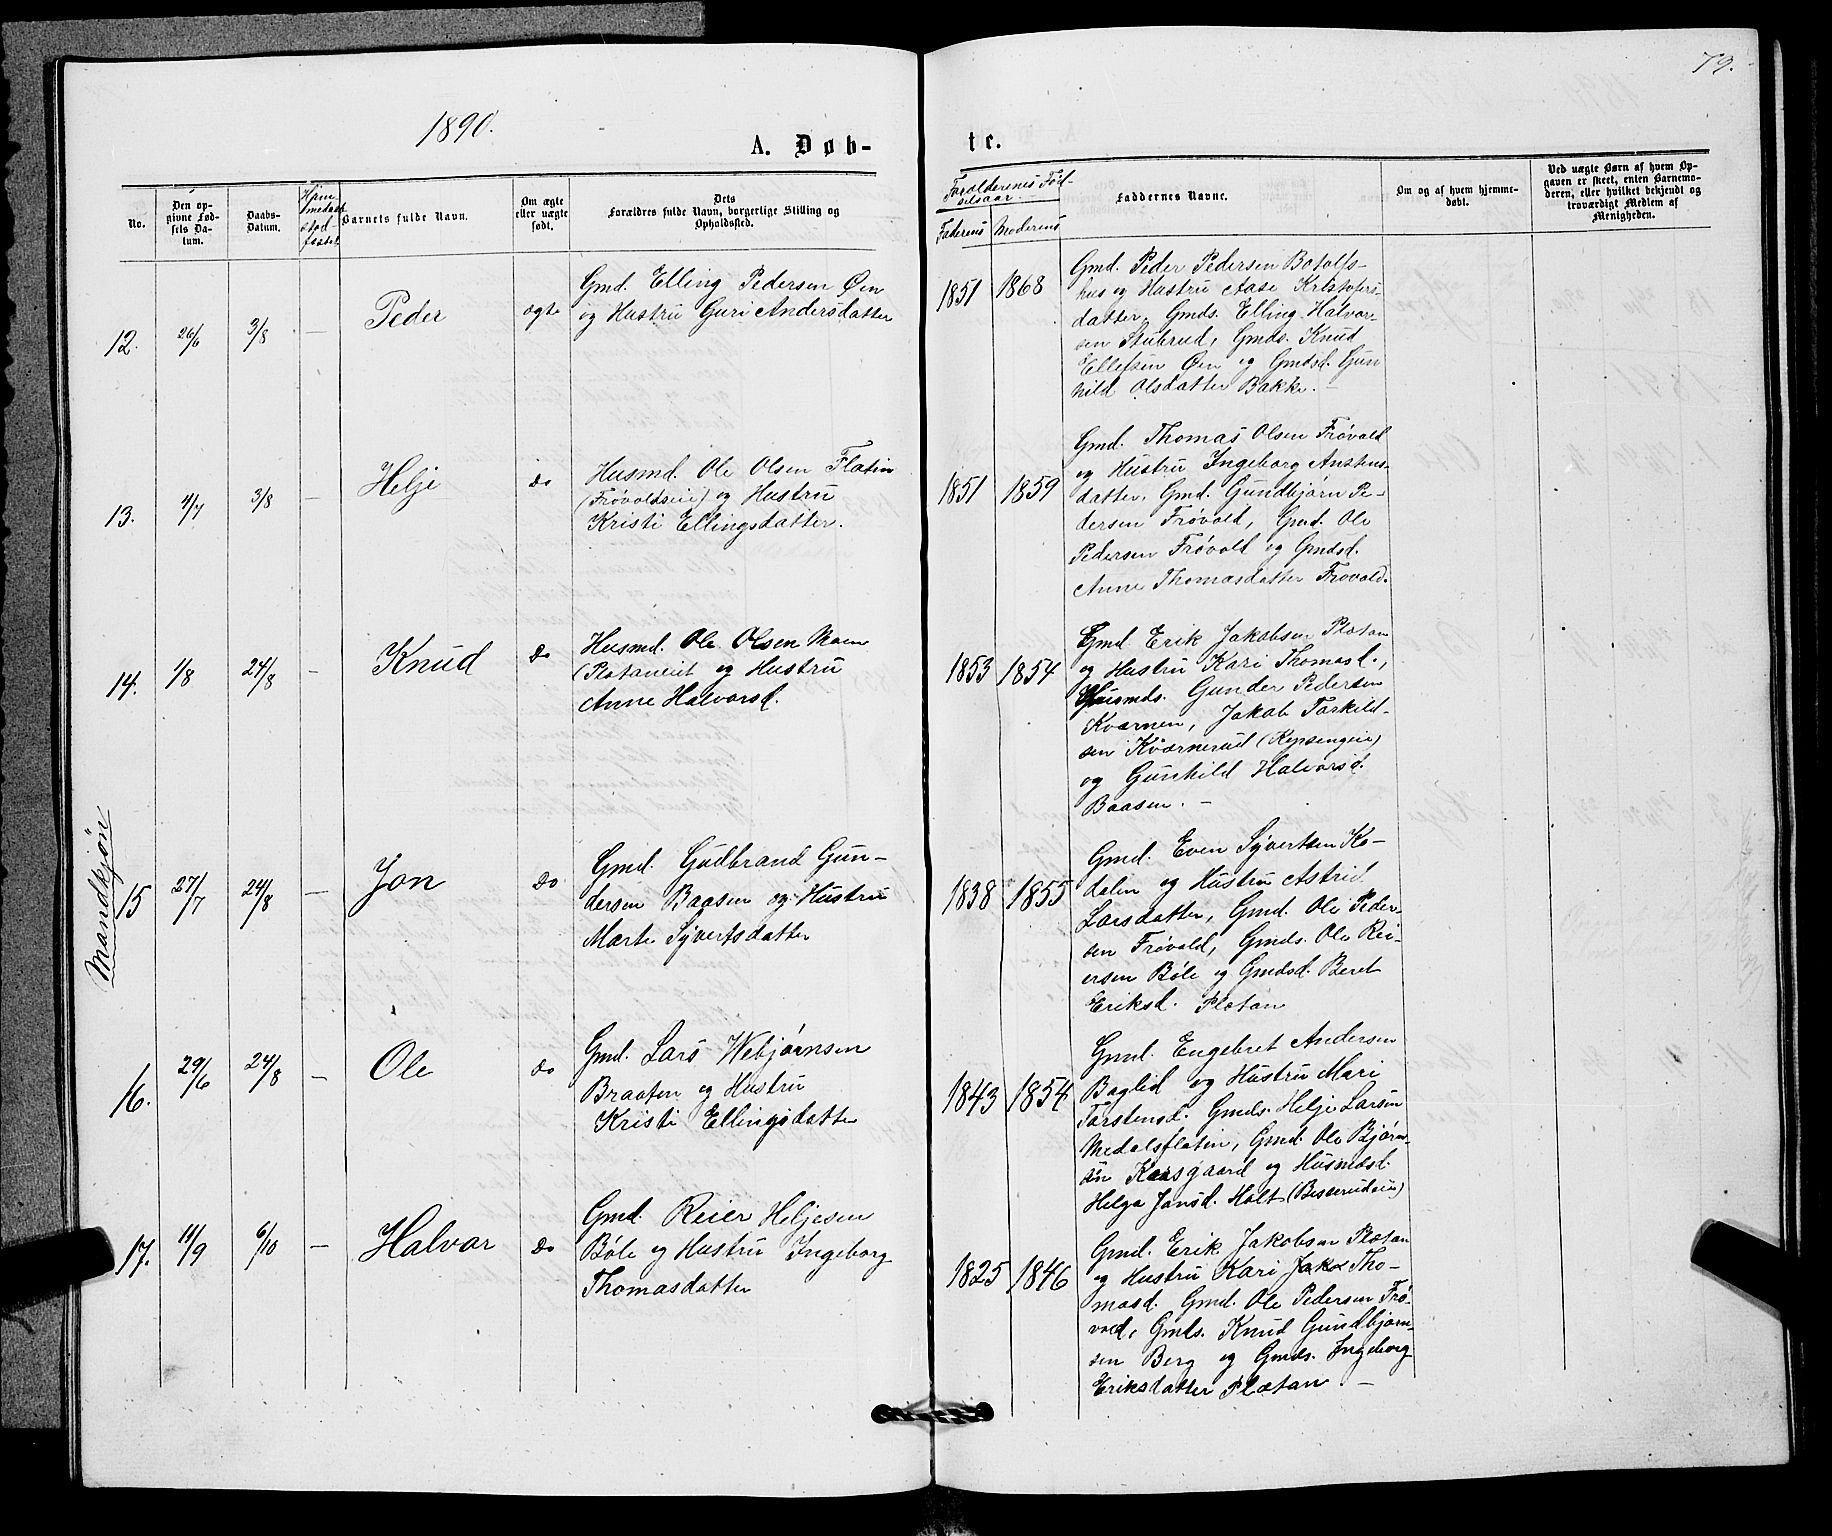 79.
1890.
A. Døb-
te.
No.
Den op-
givne Fød-
sels Da-
tum.
Daabs-
Datum.
Barnets fulde Navn.
Om ægte
eller uægte
født.
Dets
Forældres fulde Navn, borgerlige Stilling og
Opholdssted.
Forældrenes Fød-
selsaar.
Faderens
Moderens
Faddernes Navne.
Om og af hvem hjemme-
døbt.
Ved uægte Børn af hvem Op-
gaven er skeet, enten Barnemo-
deren, eller hvilket bekjendt og
troværdigt Medlem af
Menigheden.
Mandkjøn
12.
26/6
3/8
—
Peder
ægte
Gmd. Elling Pedersen Øen
og Hustru Guri Andersdatter
1851
1868
Gmd. Peder Pedersen Botolfs-
hus og Hustru Aase Kristofers-
datter, Gmds. Elling Halvor-
sen Stubrud, Gmds. Knud
Ellefsen Øen og Gmdsd. Gun
hild Olsdatter Bakke. —
13.
4/7
3/8
—
Helje
do
Husmd. Ole Olsen Flatin
(Frøvoldseie) og Hustru
Kristi Ellingsdatter.
1851
1859
Gmd. Thomas Olsen Frøvold
og Hustru Ingeborg Anstens-
datter, Gmd. Gundbjørn Pe-
dersen Frøvold, Gmd. Ole
Pedersen Frøvold og Gmdsd.
Anne Thomasdatter Frøvold.
14.
1/8
24/8
—
Knud
do
Husmd. Ole Olsen Moen
og Hustru
Anne Halvorsd.
1853
1854
Gmd Erik Jakobsen Plætan
og Hustru Kari Thomasd.,
Husmds. Gunder Pedersen
Kværnen, Jakob Tarkild-
sen Kværnerud (Repsengeie)
og Gunhild Halvorsd.
Baasen. —
15
27/7
24/8
—
Jon
do
Gmd. Gudbrand Gun-
dersen Baasen og Hustru
Marte Syvertsdatter
1838
1855
Gmd. Even Syvertsen Ko-
dalen og Hustru Astrid
Larsdatter, Gmd. Ole Peder-
sen Frøvold, Gmds. Ole Rei-
ersen Bøle og Gmdsd. Beret
Eriksd. Plætan
16.
29/6
24/8
—
Ole
do
Gmd. Lars Webjørnsen
Braaten og Hustru
Kristi Ellingsdatter
1843
1854
Gmd. Engebret Andersen
Baglid og Hustru Mari
Tarstensd. Gmds. Helje Larsen
Medalsflatin, Gmd. Ole Bjørn-
sen Kaasgaard og Husmdsd.
Helga Jansd. Holt (Besserudeie)
17.
11/9
6/10
—
Halvor
do
Gmd. Reier Heljesen
Bøle og Hustru Ingeborg
Thomasdatter
1825
1846
Gmd. Erik Jakobsen Plætan
og Hustru Kari Tho-
masd. Gmd. Ole Pedersen Frø-
vold, Gmds. Knud Gundbjørn-
sen Berg og Gmds. Ingeborg
Eriksdatter Plætan —